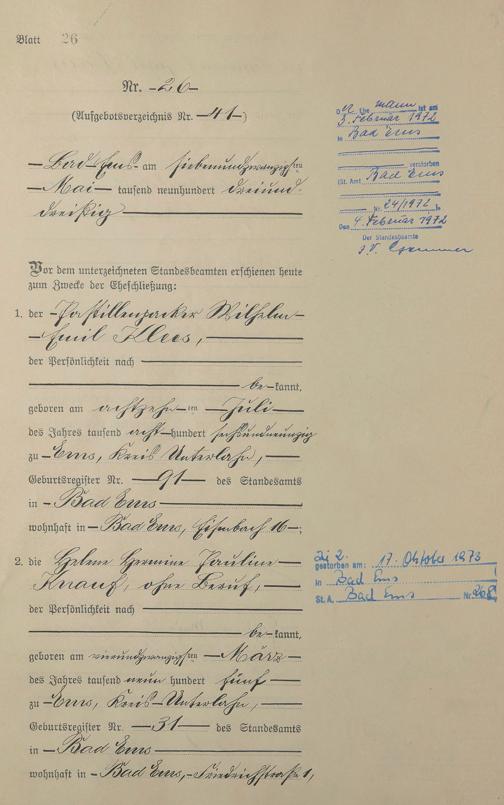 Blatt 26
Nr. 26
(Aufgebotsverzeichnis Nr. 41)
Bad Ems am siebenundzwanzigsten
Mai tausend neunhundert dreiund-
dreißig
Vor dem unterzeichneten Standesbeamten erschienen heute
zum Zwecke der Eheschließung:
1. der Pastillenpacker Wilhelm
Emil Klees,
der Persönlichkeit nach
be-kannt,
geboren am achtzehnten Juli
des Jahres tausend acht hundert sechsundneunzig
zu Ems, Kreis Unterlahn,
Geburtsregister Nr. 91 des Standesamts
in Bad Ems
wohnhaft in Bad Ems, Eisenbach 16.
2. die Helene Hermine Pauline
Knauf, ohne Beruf,
der Persönlichkeit nach
be-kannt,
geboren am vierundzwanzigsten März
des Jahres tausend neun hundert fünf
zu Ems, Kreis Unterlahn,
Geburtsregister Nr. 31 des Standesamts
in Bad Ems
wohnhaft in Bad Ems, Friedrichstraße 1,
Ehemann ist am
3. Februar 1972
in Bad Ems
verstorben
(St. Amt Bad Ems
Nr. 24/1972)
Den 4. Februar 1972
Der Standesbeamte
I.V.
Zi 2.
gestorben am: 17. Oktober 1973
in Bad Ems
St. A. Bad Ems Nr.